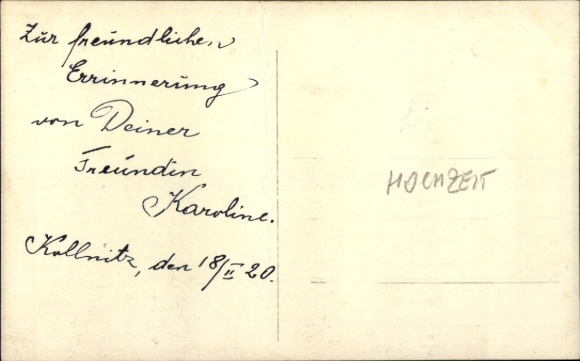 Zur freundlichen
Errinnerung
von Deiner
Freundin
Karoline.
Kollnitz, den 18/II 20.
HOCHZEIT